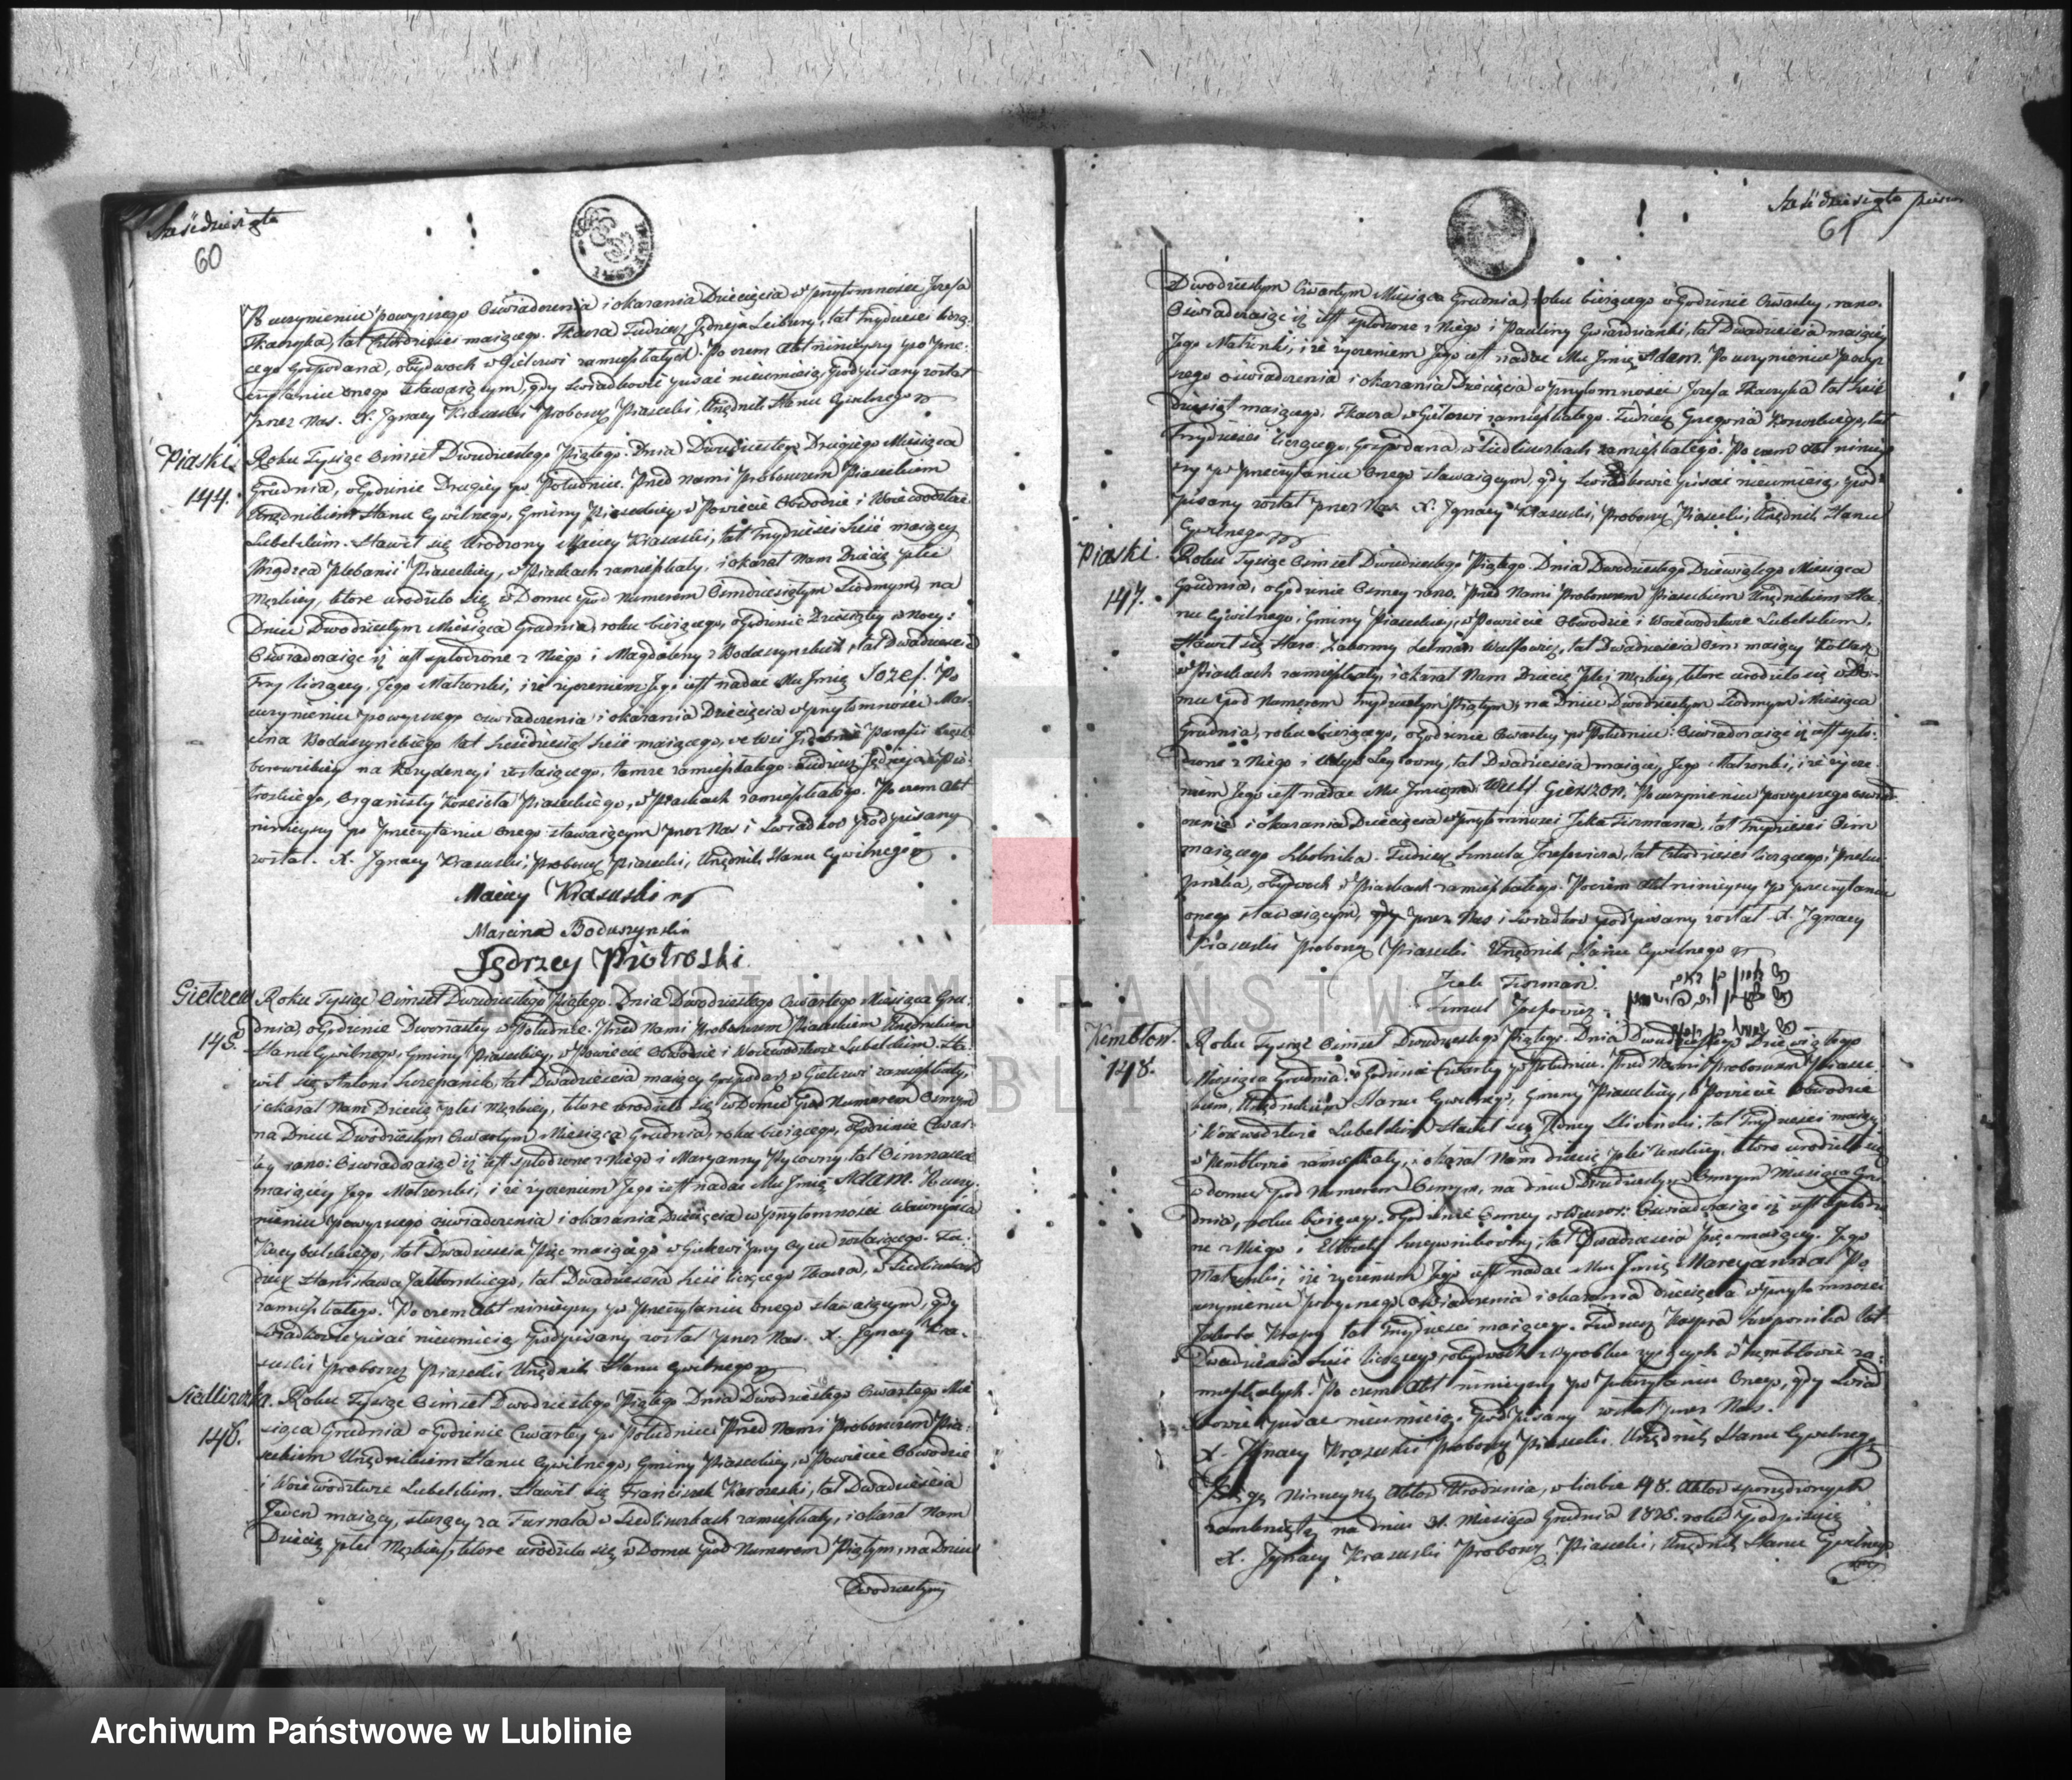 Sześćdziesiąta
60
Po uczynieniu powyższego Oświadczenia i okazania Dziecięcia w przytomności Jozefa
Tkaczyka, lat Czterdzieści maiącego, Tkacza Tudzież Jędrzeja lat Trzydzieści liczą-
cego Gospodarza, obydwóch w Giełczwi zamieszkałych. Po czem Akt ninieyszy po prze-
czytaniu onego Stawaiącym, gdy Swiadkowie pisać nieumieią, podpisany został
przez Nas. X. Ignacy Krasuski Proboszcz Piasecki, Urzędnik Stanu Cywilnego
Piaski
144.
Roku Tysiąc Ośmset Dwudziestego Piątego. Dnia Dwudziestego Drugiego Miesiąca
Grudnia, o Godzinie Drugiey po Południu. Przed Nami Proboszczem Piaseckiem
Urzędnikiem Stanu Cywilnego, Gminy Piaseckiey, w Powiecie Obwodzie i Woiewodztwie
Lubelskim. Stawił się Urodzony Maciey Krasuski, lat Trzydzieści Sześć maiący
Rządzca Plebanii Piaseckiey, w Piaskach zamieszkały, i okazał Nam Dziecię płci
Męzkiey, ktore urodziło się w Domu pod Numerem Ośmdziesiątym Siodmym, na
Dniu Dwudziestym Miesiąca Grudnia, roku bieżącego, o Godzinie Dziesiątey w Nocy:
Oświadczaiąc iż iest spłodzone z Niego i Magdaleny z Boduszynskich, lat Dwadzieścia
Trzy liczącey, Jego Małżonki, i że życzeniem Jego iest nadać Mu Jmię Jozef. Po
uczynieniu powyższego oświadczenia i okazania Dziecięcia w przytomności Mar-
cina Boduszynskiego lat Sześdziesiąt Sześć maiącego, we Wsi Parafii
na Rezydencyi zostaiącego, tamże zamieszkałego Tudzież Jędrzeja Pio-
troskiego, Organisty Kościoła Piaseckiego, w Piaskach zamieszkałego. Po czem Akt
ninieyszy po przeczytaniu onego stawaiącym przez Nas i Swiadkow podpisany
został. X. Ignacy Krasuski, Proboszcz Piasecki, Urzędnik Stanu Cywilnego
Maciey Krasuski
Marcin Boduszynski
Jędrzey Piotroski
Giełczew
145.
Roku Tysiąc Ośmset Dwudziestego Piątego. Dnia Dwudziestego Czwartego Miesiąca Gru-
dnia, o Godzinie Dwonastey w Południe. Przed Nami Proboszczem Piaseckiem Urzędnikiem
Stanu Cywilnego, Gminy Piaseckiey, w Powiecie Obwodzie i Woiewodztwie Lubelskim. Sta-
wił się Antoni Szczepanik, lat Dwadzieścia maiący Gospodarz w Giełczwi zamieszkały,
i okazał Nam Dziecię płci Męzkiey, ktore urodziło się w Domu pod Numerem Osmym
na Dniu Dwudziestym Czwartym Miesiąca Grudnia, roku bieżącego, o Godzinie Czwar-
tey rano: Oświadczaiąc iż iest spłodzone z Niego i Maryanny lat Ośmnaście
maiącey Jego Małżonki, i że życzeniem Jego iest nadać Mu Jmię Adam. Po uczy-
nieniu powyższego oświadczenia i okazania Dziecięcia w przytomności Wawrzyńca
lat Dwadzieścia Pięć maiącego w Giełczwi przy Oycu zostaiącego. Tu-
dzież Stanisława Jabłonskiego, lat Dwadzieścia Sześć liczącego Tkacza, w Siedliszczkach
zamieszkałego. Po czem Akt ninieyszy po przeczytaniu onego stawaiącym, gdy
Swiadkowie pisać nieumieią podpisany został przez Nas. X. Ignacy Kra-
suski Proboszcz Piasecki Urzędnik Stanu Cywilnego
Siedliszczka.
146.
Roku Tysiąc Ośmset Dwudziestego Piątego Dnia Dwudziestego Czwartego Mie-
siąca Grudnia o Godzinie Czwartey po Południu Przed Nami Proboszczem Pia-
seckiem Urzędnikiem Stanu Cywilnego, Gminy Piaseckiey, w Powiecie Obwodzie
i Woiewodztwie Lubelskim. Stawił się Franciszek lat Dwadzieścia
Jeden maiący, służący za Furnala w Siedliszczkach zamieszkały, i okazał Nam
Dziecię płci Męzkiey, ktore urodziło się w Domu pod Numerem Piątym, na Dniu
Dwudziestym
Sześćdziesiąta pierwsza
61
Dwudziestym Czwartym Miesiąca Grudnia, roku bieżącego o Godzinie Czwartey, rano.
Oświadczaiąc iż iest spłodzone z Niego i Pauliny Gwiazdzianki, lat Dwadzieścia maiącey
Jego Małżonki, i że życzeniem Jego iest nadać Mu Jmię Adam. Po uczynieniu powyż-
szego oświadczenia i okazania Dziecięcia w przytomności Jozefa Tkaczyka lat
maiącego, Tkacza w Giełczwi zamieszkałego. Tudzież Grzegorza lat
Trzydzieści liczącego, Gospodarza w Siedliszczkach zamieszkałego. Po czem Akt niniey-
szy po przeczytaniu onego stawaiącym, gdy Swiadkowie pisać nieumieią, pod-
pisany został przez Nas X. Ignacy Krasuski, Proboszcz Piasecki, Urzędnik Stanu
Cywilnego
Piaski.
147.
Roku Tysiąc Ośmset Dwudziestego Piątego. Dnia Dwudziestego Dziewiątego Miesiąca
Grudnia, o Godzinie Osmey rano. Przed Nami Proboszczem Piaseckiem Urzędnikiem Sta-
nu Cywilnego, Gminy Piaseckiey, w Powiecie Obwodzie i Woiewodztwie Lubelskim.
Stawił się Staro-Zakonny Zelman Wulfowicz, lat Dwadzieścia Ośm maiący
w Piaskach zamieszkały, i okazał Nam Dziecię płci Męzkiey ktore urodziło się w Do-
mu pod Numerem Trzydziestym Piątym, na Dniu Dwudziestym Siodmym Miesiąca
Grudnia, roku bieżącego, o Godzinie Czwartey po Południu: Oświadczaiąc iż iest spło-
dzone z Niego i lat Dwadzieścia maiącey Jego Małżonki, i że życze-
niem Jego iest nadać Mu Jmiona Wulf Gierszon. Po uczynieniu powyższego oświad-
czenia i okazania Dziecięcia w przytomności Jcka Fiszmana, lat Trzydzieści Ośm
maiącego Szkolnika. Tudzież Szmula Joskowicza, lat Czterdzieści liczącego,
obydwoch w Piaskach zamieszkałego. Poczem Akt ninieyszy po przeczytaniu
onego stawaiącym, przez Nas i Swiadkow podpisany został X. Ignacy
Krasuski Proboszcz Piasecki Urzędnik Stanu Cywilnego
Kembłow.
148.
Roku Tysiąc Ośmset Dwudziestego Piątego. Dnia Dwudziestego Dziewiątego
Miesiąca Grudnia, o Godzinie Czwartey po Południu. Przed Nami Proboszczem Piasec-
kiem, Urzędnikiem Stanu Cywilnego, Gminy Piaseckiey, w Powiecie Obwodzie
i Woiewodztwie Lubelskim Stawił się lat Trzydzieści maiący
w Kembłowie zamieszkały, i okazał Nam dziecię płci Żenskiey, ktore urodziło się
w domu pod Numerem Osmym, na dniu Dwudziestym Osmym Miesiąca Gru-
dnia, roku bieżącego, o Godzinie Osmey wieczor: Oświadczaiąc iż iest spłodzo-
ne z Niego i lat Dwadzieścia Pięć maiącey. Jego
Małżonki, i że życzeniem Jego iest nadać Mu Jmię Maryanna. Po
uczynieniu powyższego oświadczenia i okazania dziecięcia w przytomności
Jakóba lat Trzydzieści maiącego. Tudzież Kaspra lat
Dwadzieścia Sześć liczącego, obydwóch z wyrobku żyiących w Kembłowie za-
mieszkałych. Po czem Akt ninieyszy po przeczytaniu Onego, gdy Swiad-
kowie pisać nieumieią, Podpisany został przez Nas.
X. Ignacy Krasuski Proboszcz Piasecki, Urzędnik Stanu Cywilnego
Xięgę Ninieyszą Aktów Urodzenia, w liczbie 148. Aktow sporządzonych
zamkniętą na dniu 31. Miesiąca Grudnia 1825. roku Podpisuię
X. Ignacy Krasuski Proboszcz Piasecki, Urzędnik Stanu Cywilnego
ARCHIWUM PAŃSTWOWE
LUBLIN
Archiwum Państwowe w Lublinie